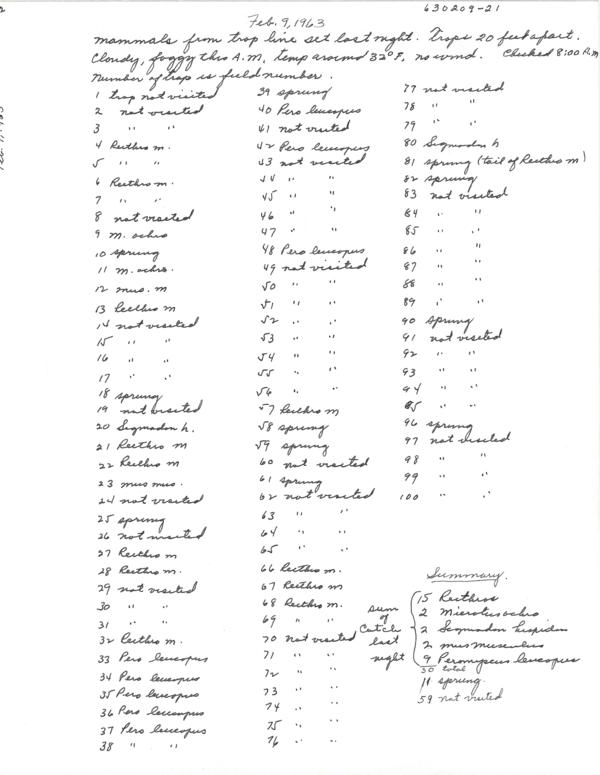 630209-21
Feb. 9, 1963
mammals from trap line set last night. Traps 20 feet apart.
Cloudy, foggy thru A.M., temp around 32°F, no wind. Checked 8:00 P.M
Number of trap is field number.
1 trap not visited
2 not visited
3 " "
4 Reithro m.
5 " "
6 Reithro m.
7 " "
8 not visited
9 M. ochro
10 sprung
11 M. ochro.
12 mus. m
13 Reithro m
14 not visited
15 " "
16 " "
17 " "
18 sprung
19 not visited
20 Sigmodon h.
21 Reithro m
22 Reithro m
23 mus mus.
24 not visited
25 sprung
26 not visited
27 Reithro m
28 Reithro m.
29 not visited
30 " "
31 " "
32 Reithro m.
33 Pero leucopus
34 Pero leucopus
35 Pero leucopus
36 Pero leucopus
37 Pero leucopus
38 " "
39 sprung
40 Pero leucopus
41 not visited
42 Pero leucopus
43 not visited
44 " "
45 " "
46 " "
47 " "
48 Pero leucopus
49 not visited
50 " "
51 " "
52 " "
53 " "
54 " "
55 " "
56 " "
57 Reithro m
58 sprung
59 sprung
60 not visited
61 sprung
62 not visited
63 " "
64 " "
65 " "
66 Reithro m.
67 Reithro m
68 Reithro m.
69 " "
70 not visited
71 " "
72 " "
73 " "
74 " "
75 " "
76 " "
77 not visited
78 " "
79 " "
80 Sigmodon h
81 sprung (tail of Reithro m)
82 sprung
83 not visited
84 " "
85 " "
86 " "
87 " "
88 " "
89 " "
90 sprung
91 not visited
92 " "
93 " "
94 " "
95 " "
96 sprung
97 not visited
98 " "
99 " "
100 " "
Summary.
sum of Catch last night
15 Reithros
2 Microtus ochro
2 Sigmodon hispidus
2 mus musculus
9 Peromyscus leucopus
30 total
11 sprung.
59 not visited